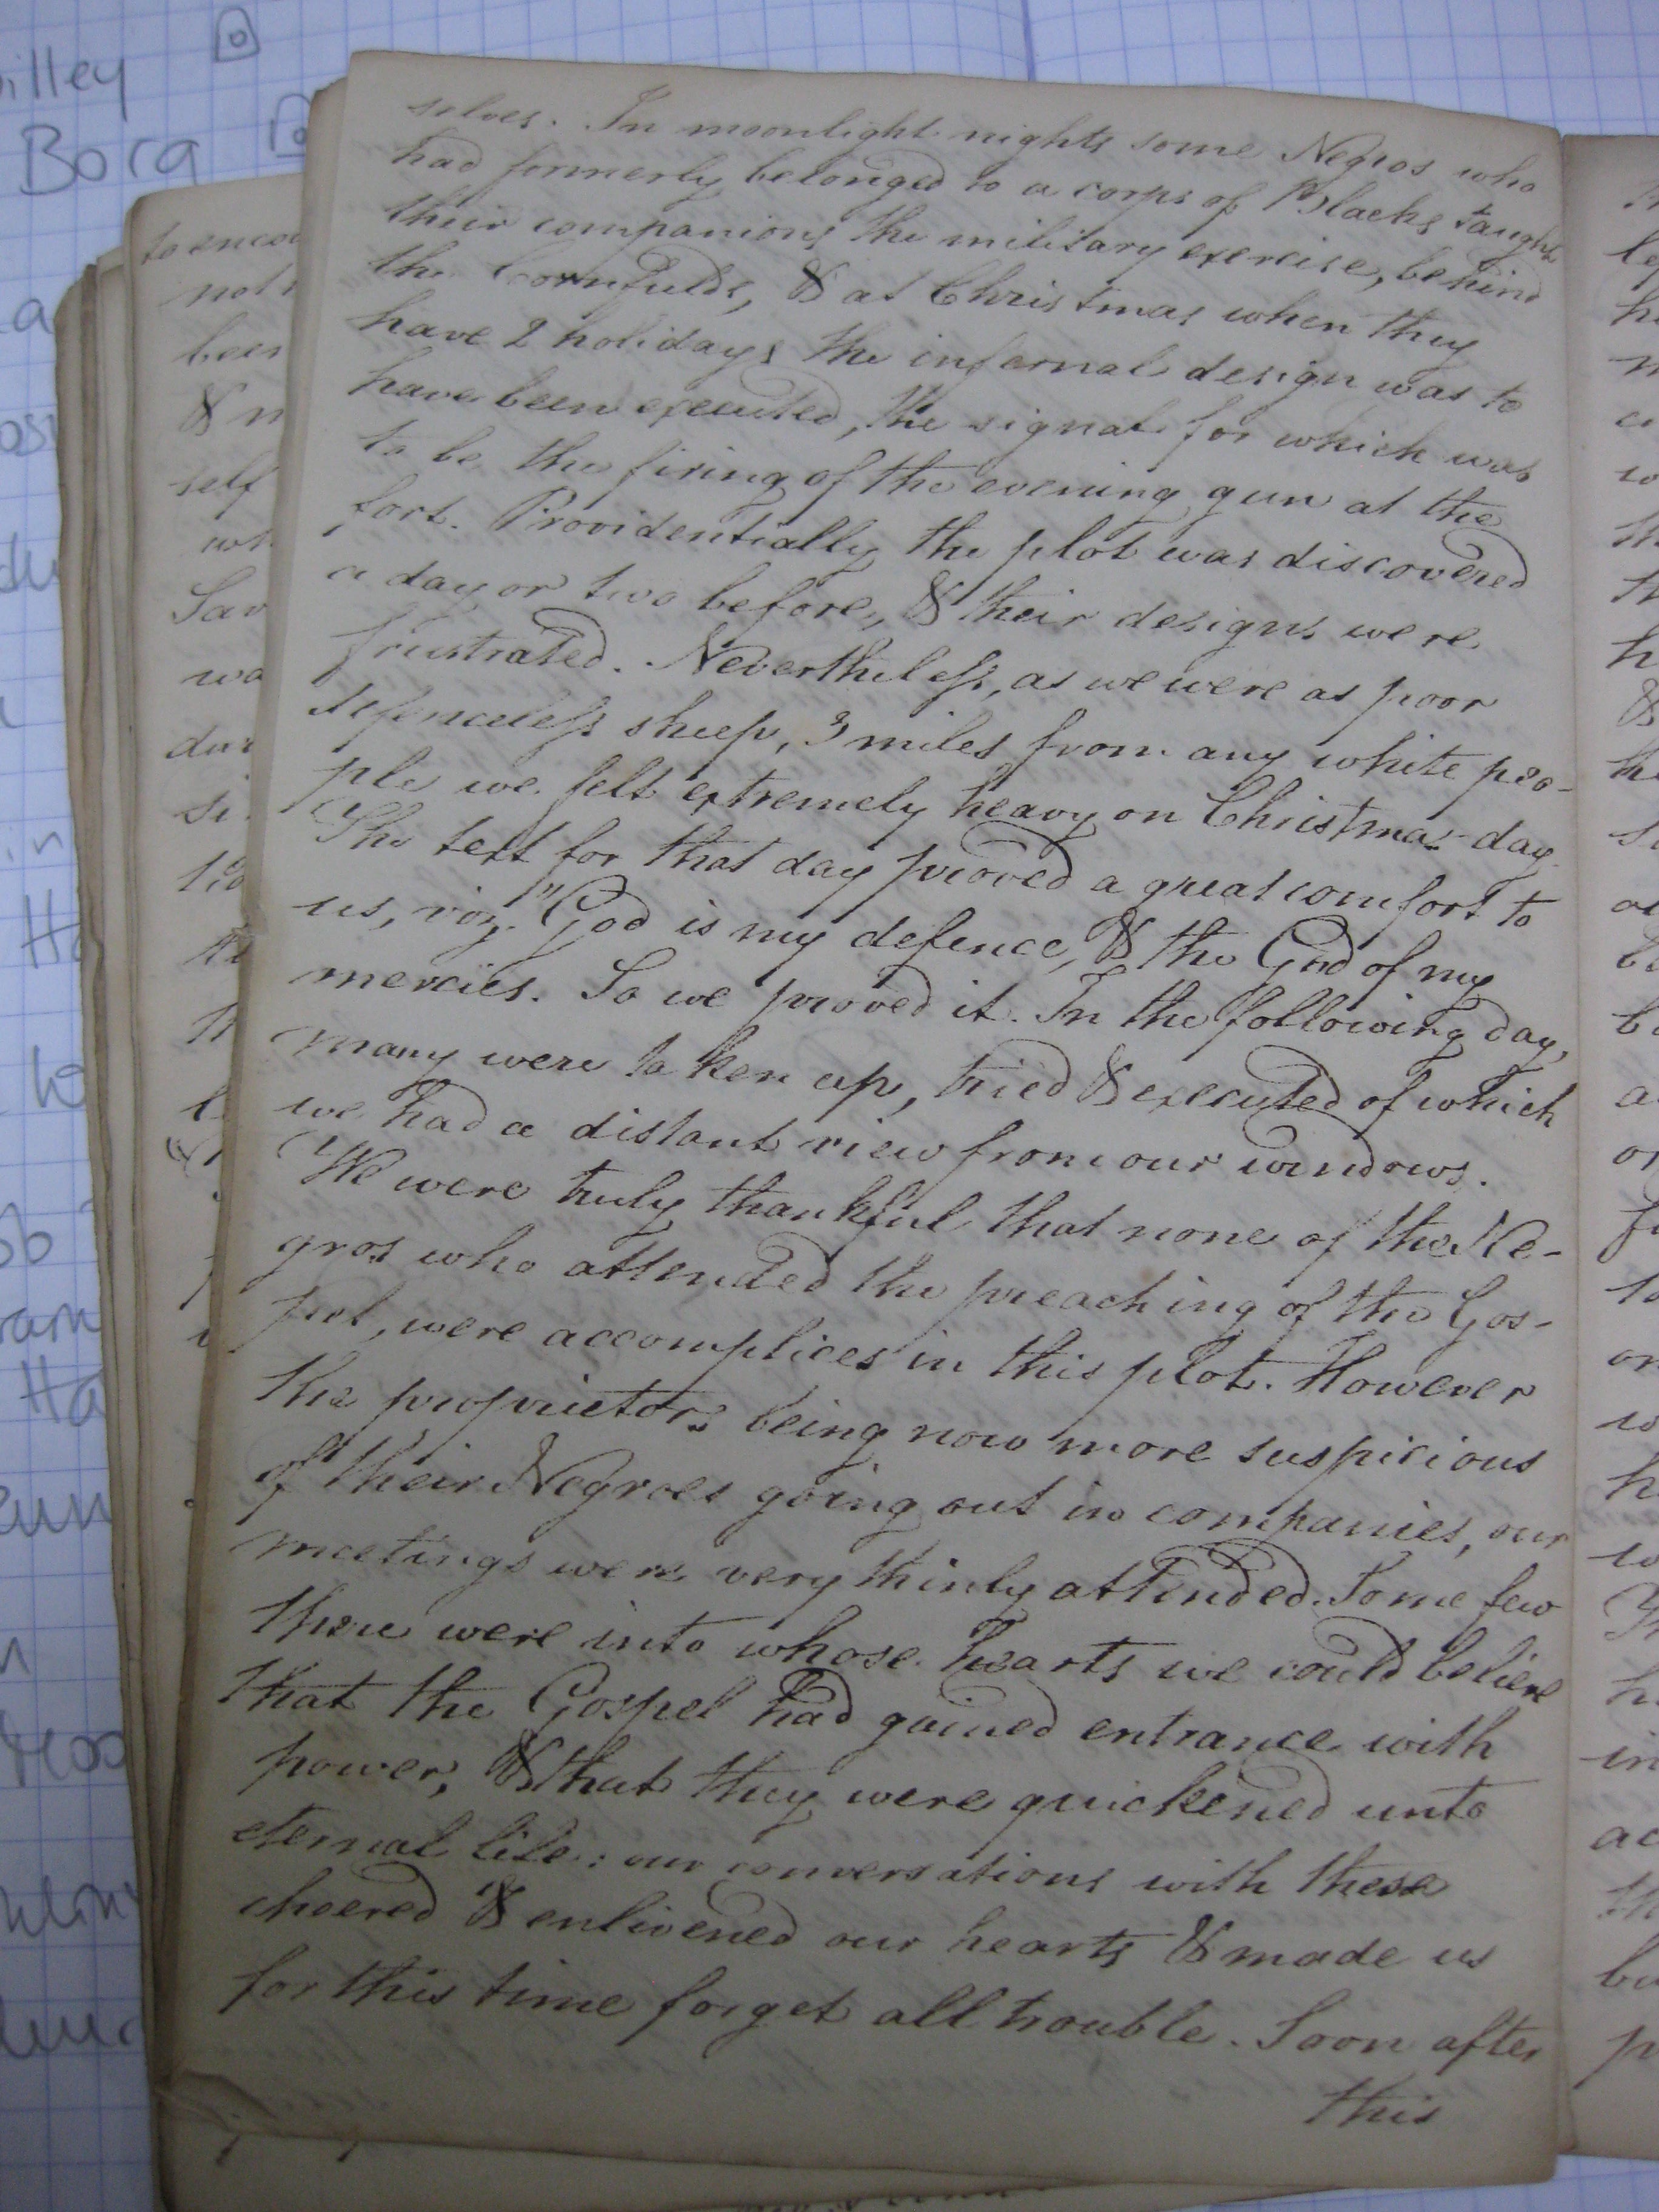 selves. In moonlight nights some Negros who
had formerly belonged to a corps of Blacks taught
their companions the military exercise, behind
the Cornfields, & at Christmas when they
have 2 holidays the infernal design was to
have been executed, the signal for which was
to be the firing of the evening gun at the
fort. Providentially the plot was discovered
a day or two before, & their designs were
frustrated. Nevertheless, as we were as poor
defenceless sheep, 3 miles from any white peo-
ple we felt extremely heavy on Christmas-day.
The text for that day proved a great comfort to
us, viz. "God is my defence, & the God of my
mercies. So we proved it. In the following day,
many were taken up, tried & executed of which
we had a distant view from our windows.
We were truly thankful that none of the Ne-
gros who attended the preaching of the Gos-
pel, were accomplices in this plot. However
the proprietors being now more suspicious
of their Negroes going out in companies, our
meetings were very thinly attended. Some few
there were into whose hearts we could believe
that the Gospel had gained entrance with
power, & that they were quickened unto
eternal life: our conversations with these
cheered & enlivened our hearts & made us
for this time forget all trouble. Soon after
this
illey
Borg
to encou
not
been
& m
self
Sav